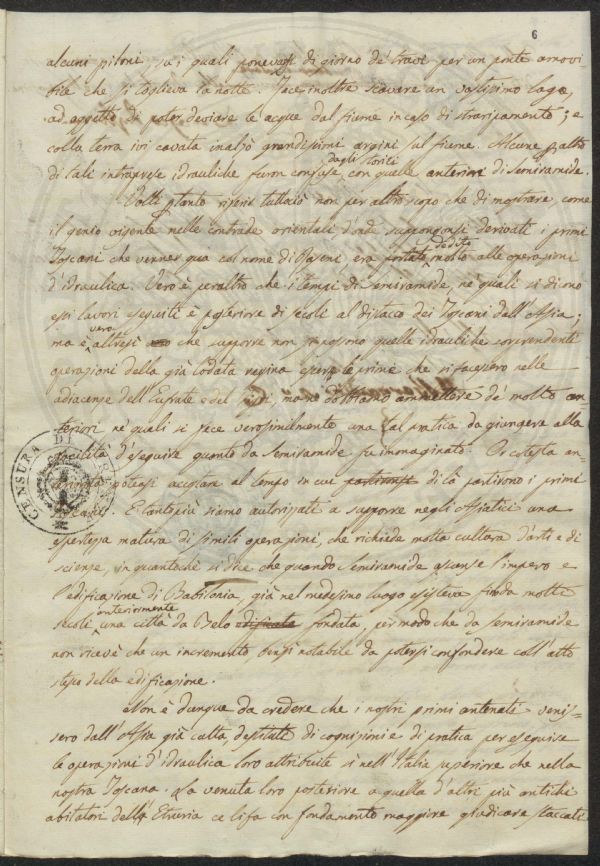 6
alcuni piloni, su i quali ponevasi di giorno de' travi per un ponte amovi-
bile che si toglieva la notte. Fece inoltre scavare un vastissimo lago
ad oggetto di poter deviare le acque dal fiume in caso di straripamento; e
colla terra ivi cavata inalzò grandissimi argini sul fiume. Alcune peraltro
di tali intraprese idrauliche furon confuse dagli storici con quelle anteriori di Semiramide.
Volli pertanto riferir tuttociò non per altro scopo che di mostrare come
il genio vigente nelle contrade orientali d'onde suppongonsi derivati i primi
Toscani che vennero qua col nome di Raseni, era portato dedito molto alle operazioni
d'idraulica. Vero è peraltro che i tempi di Semiramide, ne' quali si dicono
essi lavori eseguiti è posteriore di secoli al distacco dei Toscani dall'Assia;
ma è vero altresì che supporre non si possono quelle idrauliche sorprendenti
operazioni della già lodata regina essere le prime che si facessero nelle
adiacenze dell'Eufrate e del ma ne dobbiamo ammettere de' molto an-
teriori ne' quali si fece verosimilmente una tal pratica da giungere alla
facilità d'eseguire quanto da Semiramide fu immaginato. Or cotesta an-
poteasi accusare al tempo in cui di là partirono i primi
E tantopiù siamo autorizzati a supporre negli Assiatici una
espertezza matura di simili operazioni, che richiede molta cultura d'arti e di
scienze, in quantochè si dice che quando Semiramide ascense l'impero e
l'edificazione di Babilonia, già nel medesimo luogo esisteva fonda molti
secoli anteriormente una città da Belo edificata fondata, per modo che da Semiramide
non ricevà che un incremento bensì notabile da potersi confondere coll'atto
stesso della edificazione.
Non è dunque da credere che i nostri primi antenati venis-
sero dall'Assia già colta, destituti di cognizioni e di pratica per eseguire
le operazioni d'idraulica loro attribuite sì nell'Italia superiore che nella
nostra Toscana. La venuta loro posteriore a quella d'altri più antichi
abitatori dell'Etruria ce li fa con fondamento maggiore giudicare staccati
CENSURA DI